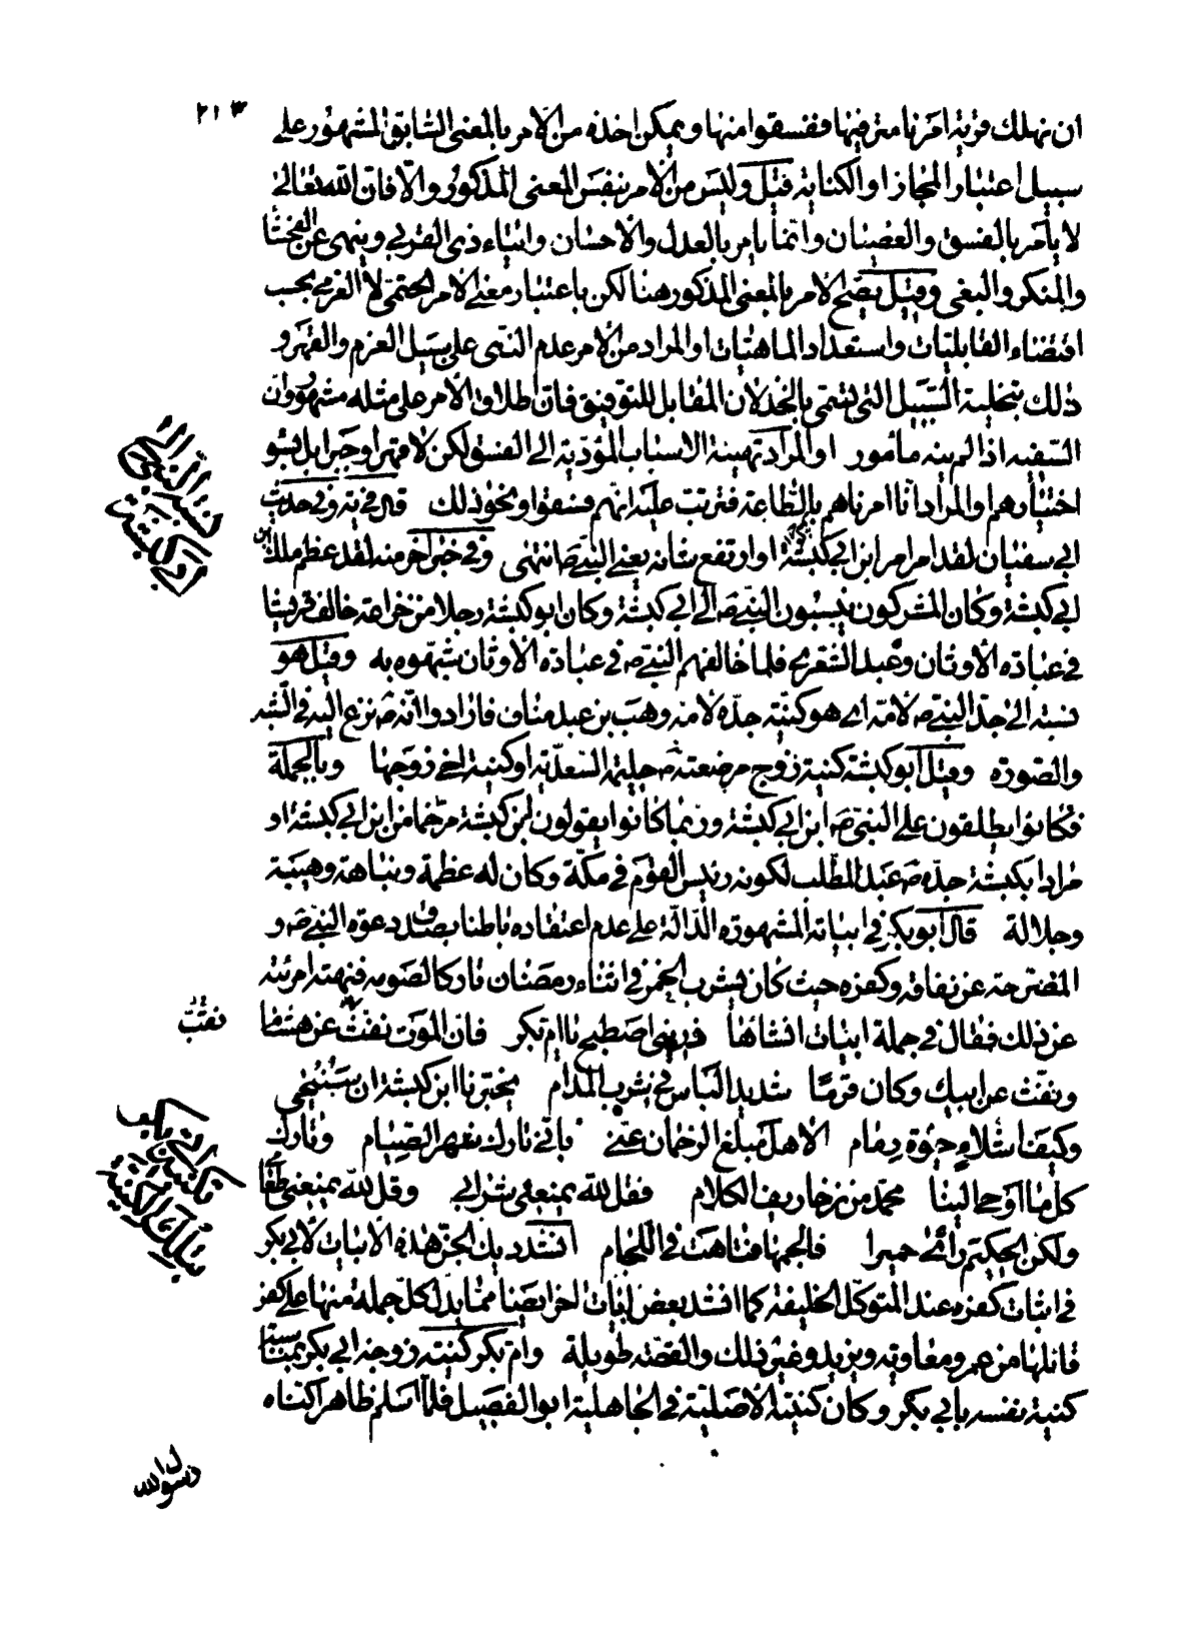 ٢١٣
ان نهلك قرية امرنا مترفيها ففسقوا منها ويمكن اخذه من الأمر بالمعنى السّابق المشهور على
سبيل اعتبار المجاز او الكناية قيل وليس من الأمر بنفس المعنى المذكور والّا فانّ الله تعالى
لا يأمر بالفسق والعصيان وانّما يامر بالعدل والأحسان وايتاء ذى القربى وينهى عن الفحشا
والمنكر والبغى وقيل يصحّ الأمر بالمعنى المذكور هنا لكن باعتبار معنى الأمر الحتمى لا العزمى بحسب
اقتضاء القابليّات واستعداد الماهيّات او المراد من الأمر عدم النهى على سبيل العزم والقهر و
ذلك بتخلية السّبيل التى تسمّى بالخذلان المقابل للتوفيق فانّ اطلاق الأمر على مثله مشهور وانّ
السّفيه اذا لم ينه مأمور او المراد تهيئة الاسباب المؤدّية الى الفسق لكن لا قهرا وجبرا بل بسو
اختيارهم او المراد انّا امرناهم بالطّاعة فترتب عليه انّهم فسقوا ونحو ذلك قال فى يه وفى حديث
ابى سفيان لقد امر امر ابن ابى كبشة اى ارتفع شانه يعنى النبىّ ص انتهى وفى خبر آخر منه لقد عظم ملك ابن
ابى كبشة وكان المشركون ينسبون النبىّ ص الى ابى كبشة وكان ابو كبشة رجلا من خزاعة خالف قريشا
فى عبادة الأوثان وعبد الشّعرى فلما خالفهم النبىّ ص فى عبادة الأوثان شبّهوه به وقيل هو
نسبته الى جدّ النبىّ ص لأمّه اى هو كنية جدّه لأمّه وهب بن عبد مناف فارادوا انّه ص نزع اليه فى الشّبه
والصّورة وقيل ابو كبشة كنية زوج مرضعته ص حليمة السّعديّة او كنية اخى زوجها وبالجملة
فكانوا يطلقون على النبىّ ص ابن ابى كبشة وربّما كانوا يقولون ابن كبشة مرخّما من ابن ابى كبشة او
مرادا بكبشة جدّه ص عبد المطّلب لكونه رئيس القوم فى مكّة وكان له عظمة ونباهة وهيبة
وجلالة قال ابو بكر فى ابياته المشهورة الدّالّة على عدم اعتقاده باطنا بصدق دعوة النبىّ ص و
المفترحة عن نفاقه وكفره حيث كان يشرب الخمر فى اثناء رمضان تاركا لصومه فنهته امرئته
عن ذلك فقال فى جملة ابيات انشاها ذرينى اصطبح يا امّ بكر فان الموت نفّث عن هشام
ونفّث عن ابيك وكان قرمًا شديد البأس فى شرب المدام يخبّرنا ابن كبشة ان سنحيى
وكيف اشلاء حيوة وهام الا هل مبلغ الرحمان عنّى بانّى تارك شهر الصّيام وتارك
كلّ ما اوحى الينا محمّد من زخاريف الكلام فقل لله يمنعنى شرابى وقل لله يمنعنى طعامى
ولكن الحكيم رأى حميرا فالجمها فتاهت فى اللّجام انشد ديك الجنّ هذه الأبيات لأبى بكر
فى اثبات كفره عند المتوكّل الخليفة كما انشد بعض ابيات اخر ايضا ممّا يدلّ كلّ جملة منها على كفر
قائلها من عمر ومعاوية ويزيد وغير ذلك والقصّة طويلة وامّ بكر كنية زوجة ابى بكر بمناسبة
كنية نفسه بابى بكر وكان كنيته الأصليّة فى الجاهلية ابو الفصيل فلمّا اسلم ظاهرا كناه
نسبة النبىّ الى
ابى كبشة
نفثت
رسول الله